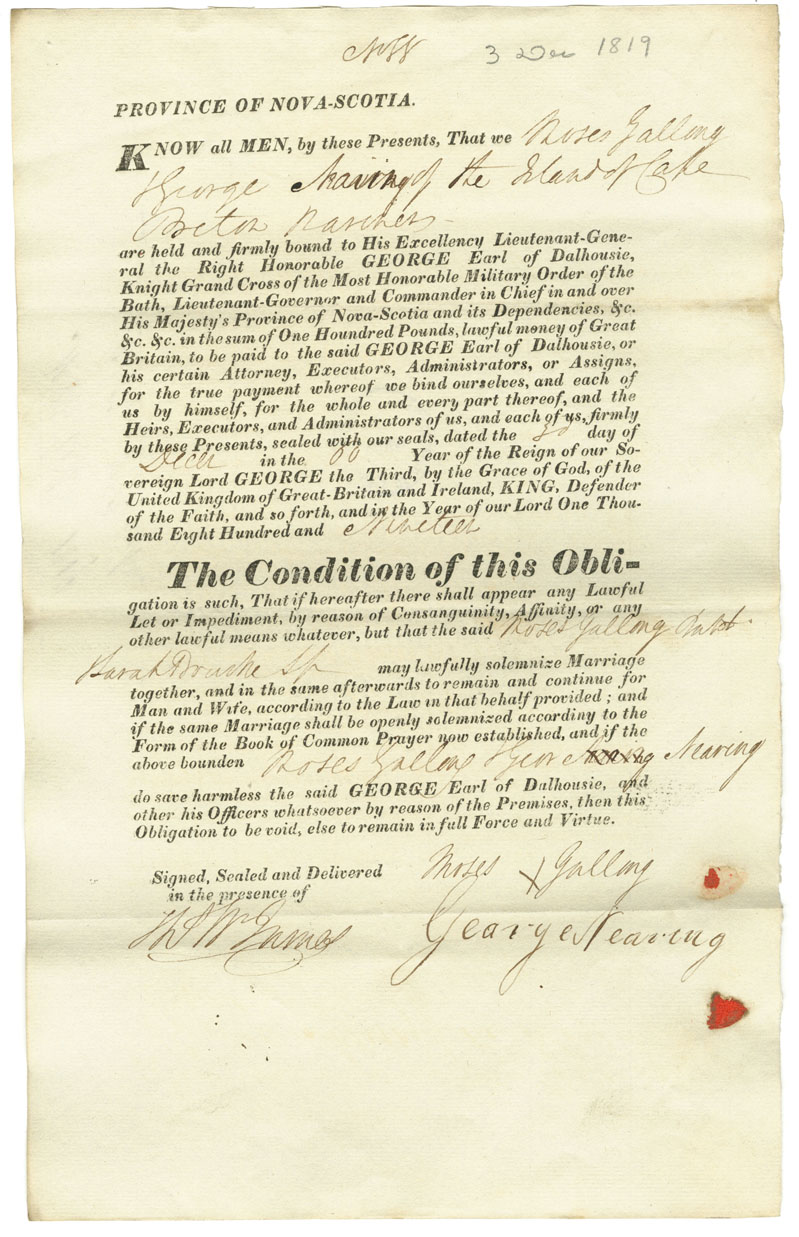 3 Dec 1819
PROVINCE OF NOVA-SCOTIA.
KNOW all MEN, by these Presents, That we Moses Gallong
& George Nearing of the Island of Cape
Breton
are held and firmly bound to His Excellency Lieutenant-Gene-
ral the Right Honorable GEORGE Earl of Dalhousie,
Knight Grand Cross of the Most Honorable Military Order of the
Bath, Lieutenant-Governor and Commander in Chief in and over
His Majesty's Province of Nova-Scotia and its Dependencies, &c.
&c. &c. in the sum of One Houndred Pounds, lawful money of Great
Britain, to be paid to the said GEORGE Earl of Dalhousie, or
his certain Attorney, Executors, Administrators, or Assigns,
for the true payment whereof we bind ourselves, and each of
us by himself, for the whole and every part thereof, and the
Heirs, Executors, and Administrators of us, and each of us, firmly
by these Presents, sealed with our seals, dated the day of
Decr in the 60 Year of the Reign of our So-
vereign Lord GEORGE the Third, by the Grace of God, of the
United Kingdom of Great-Britain and Ireland, KING, Defender
of the Faith, and so forth, and in the Year of our Lord One Thou-
sand Eight Hundred and Nineteen
The Condition of this Obli-
gation is such, That if hereafter there shall appear any Lawful
Let or Impediment, by reason of Consanguinity, Affinity, or any
other lawful means whatever, but that the said Moses Gallong
Sarah may lawfully solemnize Marriage
together, and in the same afterwards to remain and continue for
Man and Wife, according to the Law in that behalf provided ; and
if the same Marriage shall be openly solemnized accordiny to the
Form of the Book of Common Prayer now established, and if the
above bounden Moses Gallong & Geor Nearing
do save harmless the said GEORGE Earl of Dalhousie, and
other his Officers whatsoever by reason of the Premises, then this
Obligation to be void, else to remain in full Force and Virtue.
Signed, Sealed and Delivered Moses X Gallong
in the presence of
George Nearing